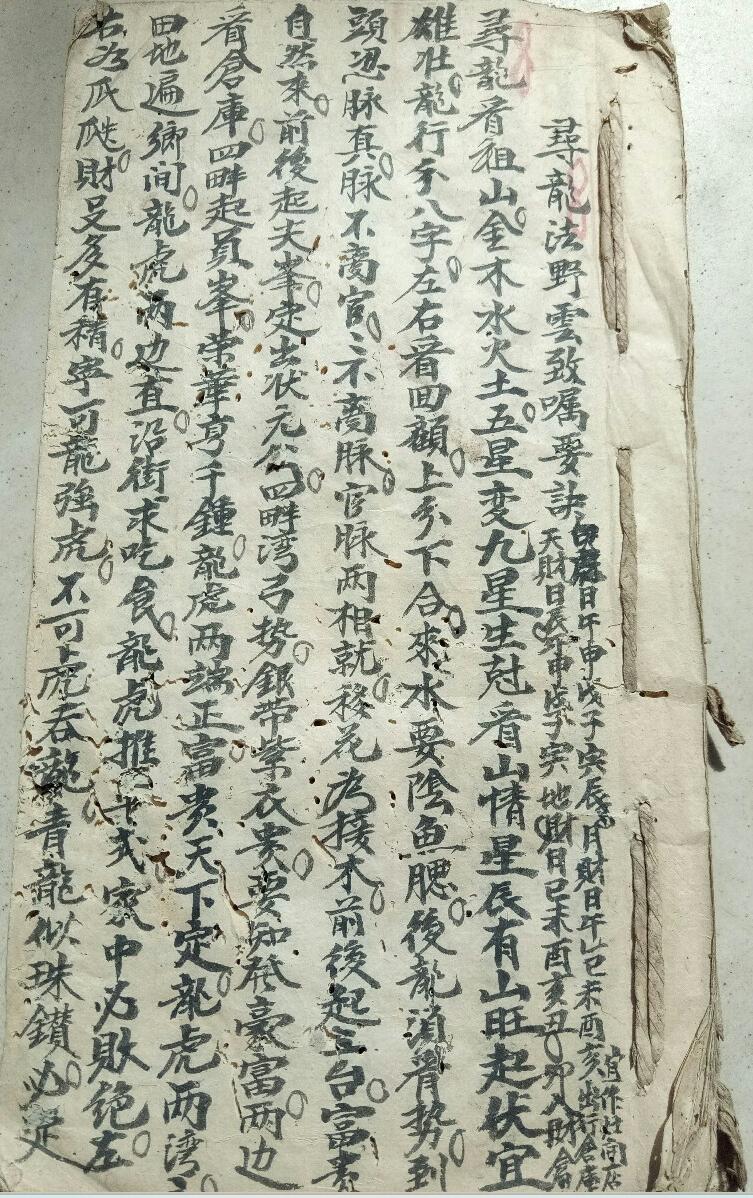 尋龍法野雲致嘱要訣
日午申戌子寅辰月財日午巳未酉亥出行倉庫
天財日辰午申戌子寅地財日巳未酉亥丑卯入財倉
尋龍看祖山金木水火土五星变九星生尅看山情星辰有山旺起伏宜
雄壮龍行分八字左右看回顧上分下合來水要陰魚腮後龍湏看势到
頭恐脉真脉不离官〻不离脉官脉两相就移花为接木前後起三台富贵
自然來前後起天峯定出状元公四畔湾弓势銀带紫衣贵要知發豪富两边
看倉庫四畔起員峯荣華亨千鍾龍虎两端正富贵天下定龍虎两湾〻
田地遍鄉间龍虎两边直沿街求吃食龍虎推車式家中必敗绝左
右为瓜瓞財足多有積寧可龍強虎不可虎吞龍青龍似珠鑽必定